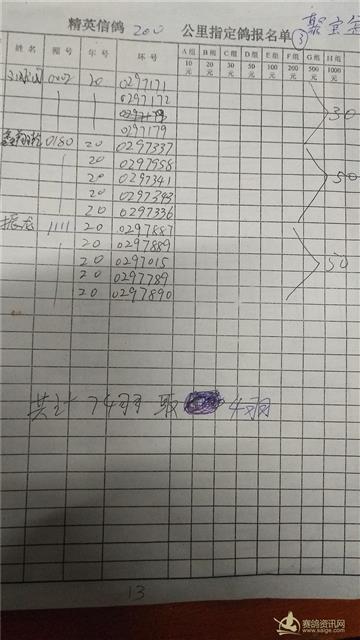 精英信鸽 200 公里指定鸽报名单 ③
姓名 棚号 年号 环号 A组 10元 B组 20元 C组 30元 D组 50元 E组 100元 F组 200元 G组 500元 H组 1000元
0002 20 0297171
0297172
0297179 30
0180 20 0297337
20 0297958
20 0297341 50
20 0297343
20 0297336
振龙 1111 20 0297887
20 0297889
20 0297015 50
20 0297789
20 0297890
共计 74羽 取 4羽
13
赛鸽资讯网
www.saige.com